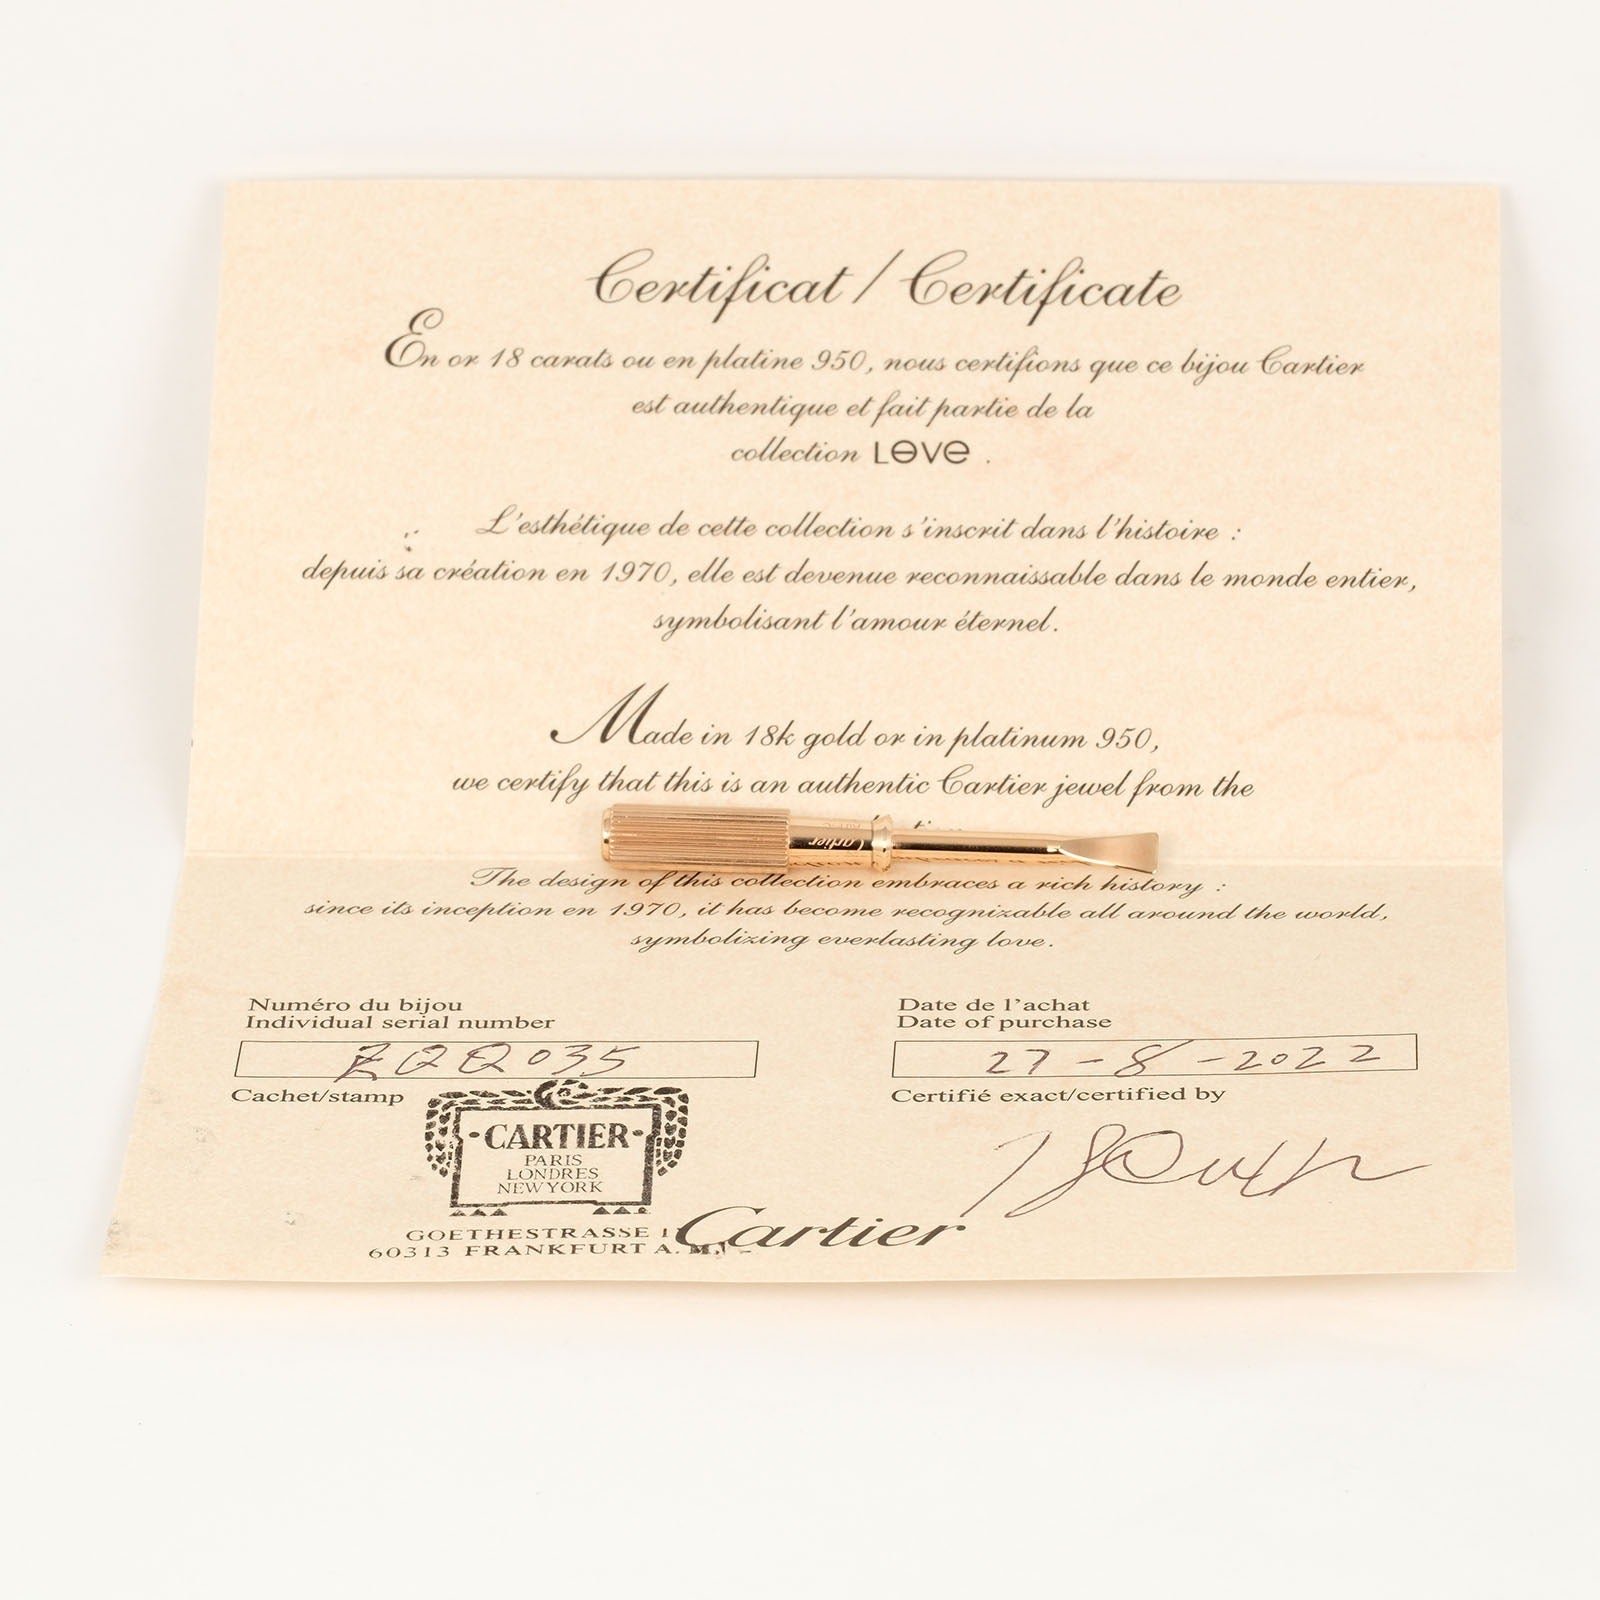 Certificat / Certificate
En or 18 carats ou en platine 950, nous certifions que ce bijou Cartier
est authentique et fait partie de la
collection LOVE .
L'esthétique de cette collection s'inscrit dans l'histoire :
depuis sa création en 1970, elle est devenue reconnaissable dans le monde entier,
symbolisant l'amour éternel.
Made in 18k gold or in platinum 950,
we certify that this is an authentic Cartier jewel from the
Cartier
The design of this collection embraces a rich history :
since its inception en 1970, it has become recognizable all around the world,
symbolizing everlasting love.
Numéro du bijou
Individual serial number
ZQQ035
Date de l'achat
Date of purchase
27-8-2022
Cachet/stamp
Certifié exact/certified by
CARTIER
PARIS
LONDRES
NEW YORK
GOETHESTRASSE
60313 FRANKFURT A. M.
Cartier